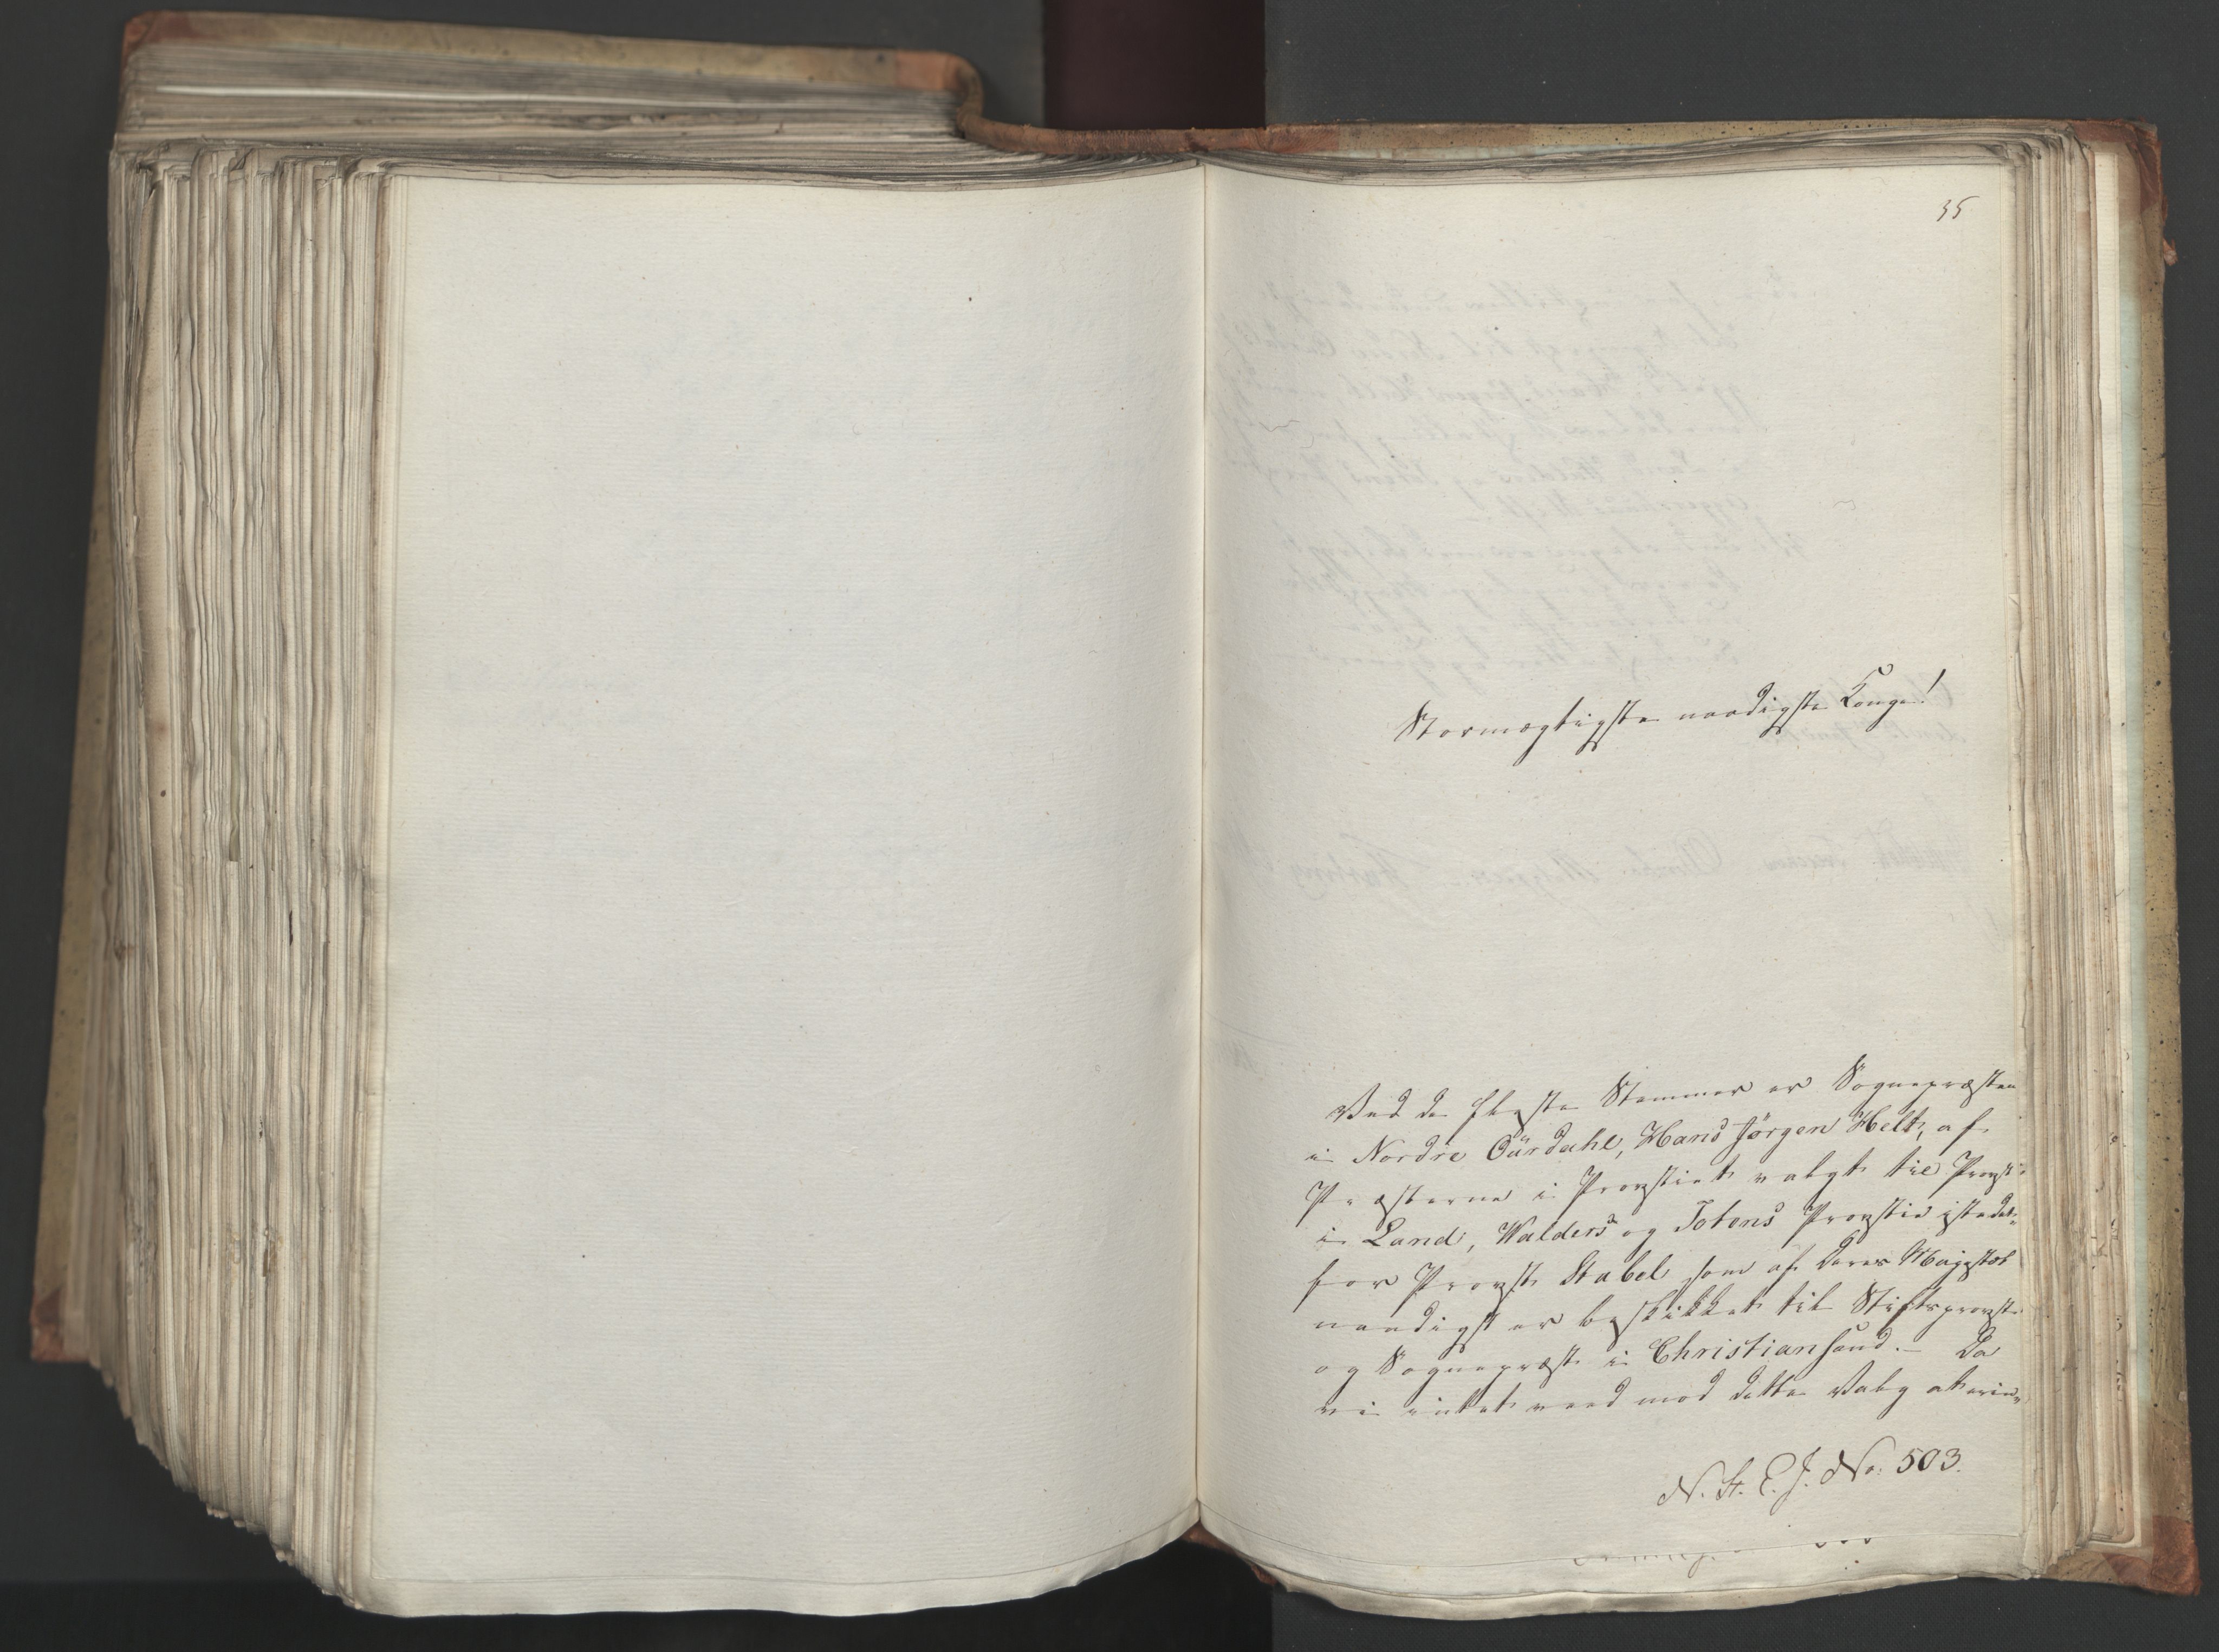 35
Stormægtigste naadigste Konge!
Ved de fleste Stemmer er Sognepræsten
i Nordre Oürdahl, Hans Jörgen Helt, af
Præsterne i Provstiet valgt til Provst
i Land, Walders og Totens Provstie isteden
for Provst Stabel som af Deres Majestæt
naadigst er beskikket til Stiftsprovst
og Sognepræst i Christiansand. – Da
vi intet veed mod dette Valg at erin-
N. St. E. J. No. 503.